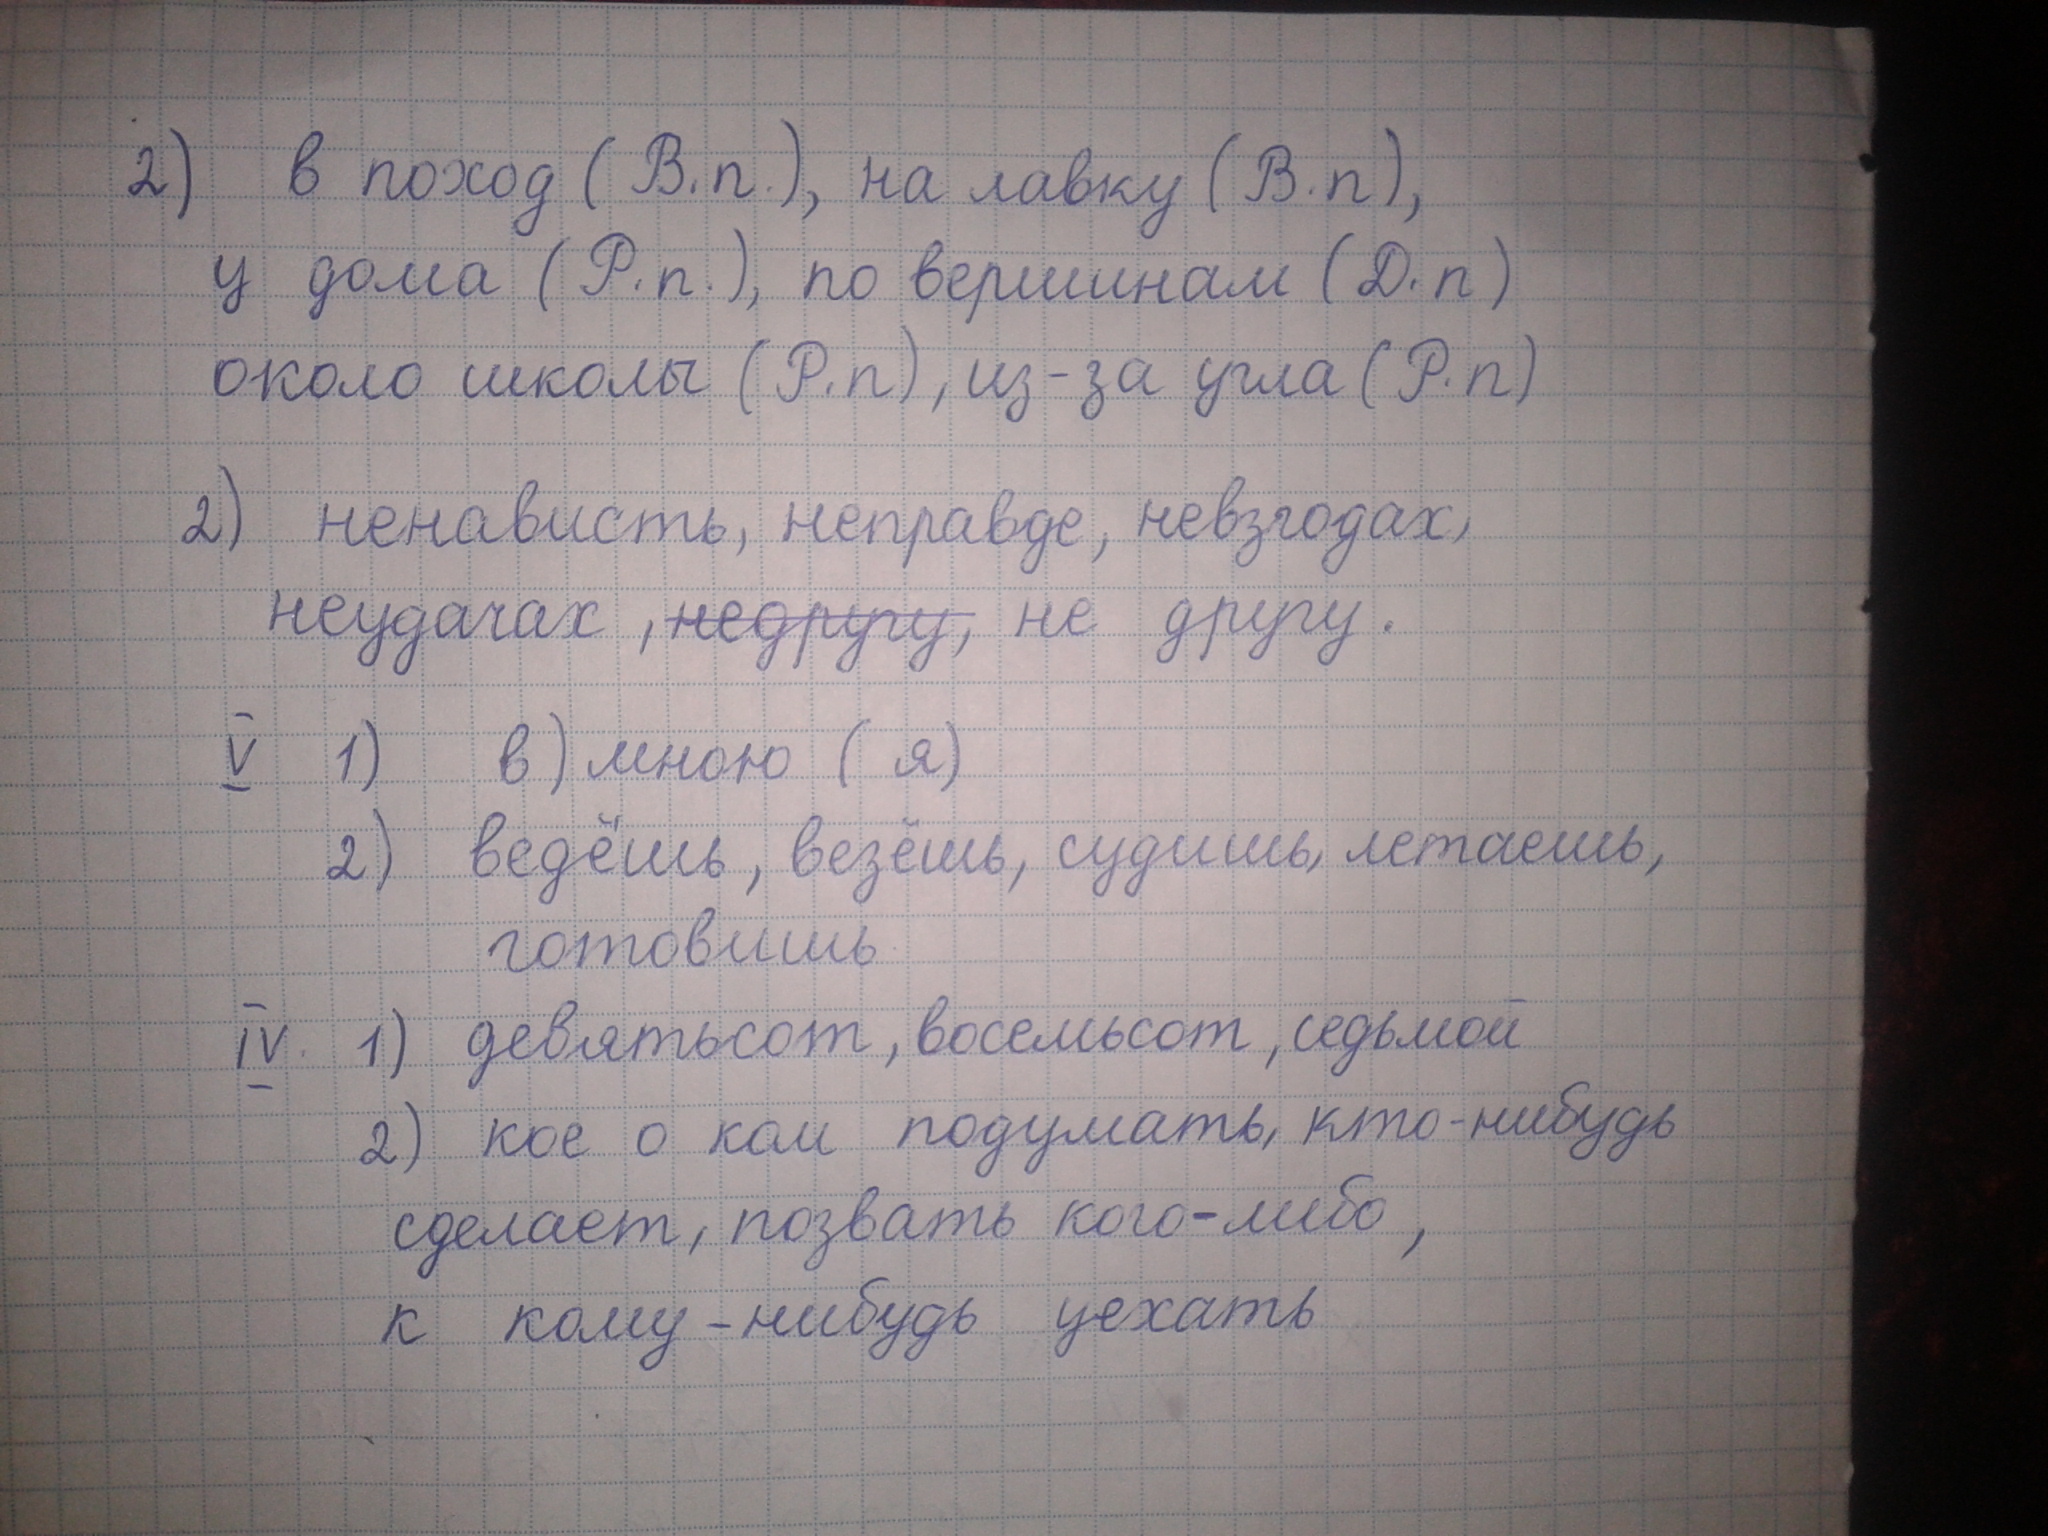 2) в поход (В.п.), на лавку (В.п),
у дома (Р.п.), по вершинам (Д.п)
около школы (Р.п), из-за угла (Р.п)
2) ненависть, неправде, невзгодах,
неудачах, недругу, не другу.
V 1) в) мною (я)
2) ведёшь, везёшь, судишь, летаешь,
готовишь
IV. 1) девятьсот, восемьсот, седьмой
2) кое о ком подумать, кто-нибудь
сделает, позвать кого-либо,
к кому-нибудь уехать